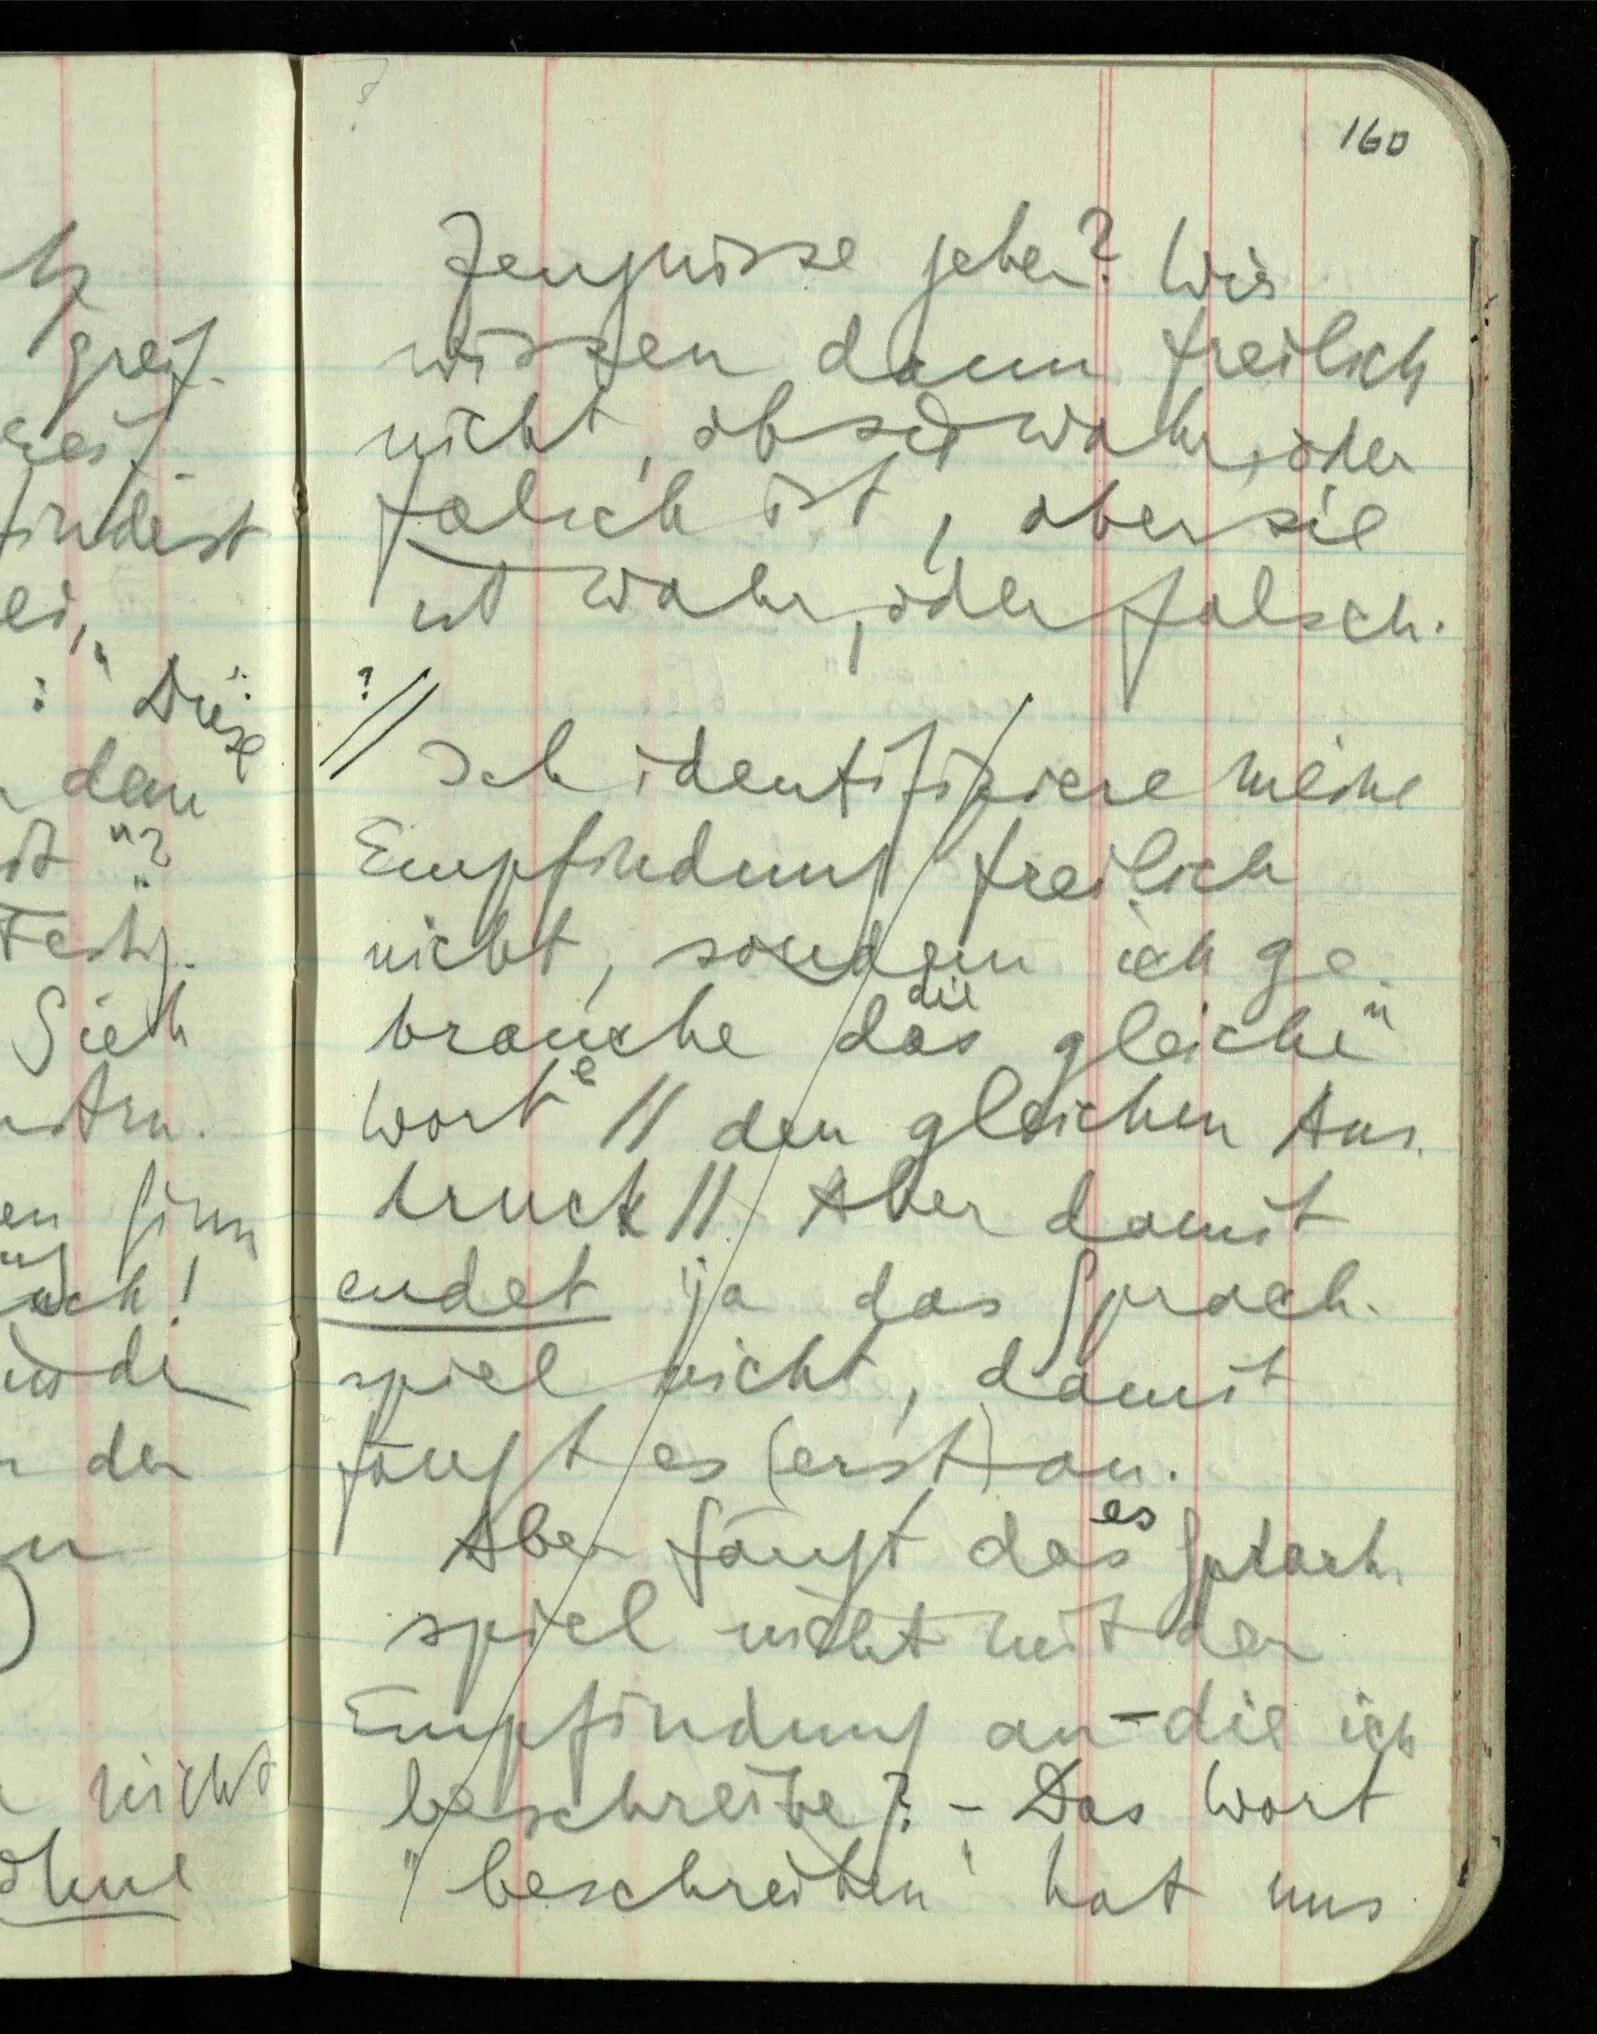 160
Zeugnisse geben? Wir
wissen dann freilich
nicht, ob sie wahr, oder
falsch ist, aber sie
ist wahr, oder falsch.
? //
Ich identifiziere meine
Empfindung freilich
nicht, sondern ich ge-
die
brauche das gleiche n
Wort e // den gleichen Aus-
druck // Aber damit
endet ja das Sprach-
spiel nicht, damit
fängt es (erst) an.
es
Aber fängt das Sprach-
spiel nicht mit der
Empfindung an – die ich
beschreibe? – Das Wort
"beschreiben" hat uns
greif-
findest
ei,"
: "Diese
den
ist"?
Sieh
Sinn
!
der
nicht
ohne